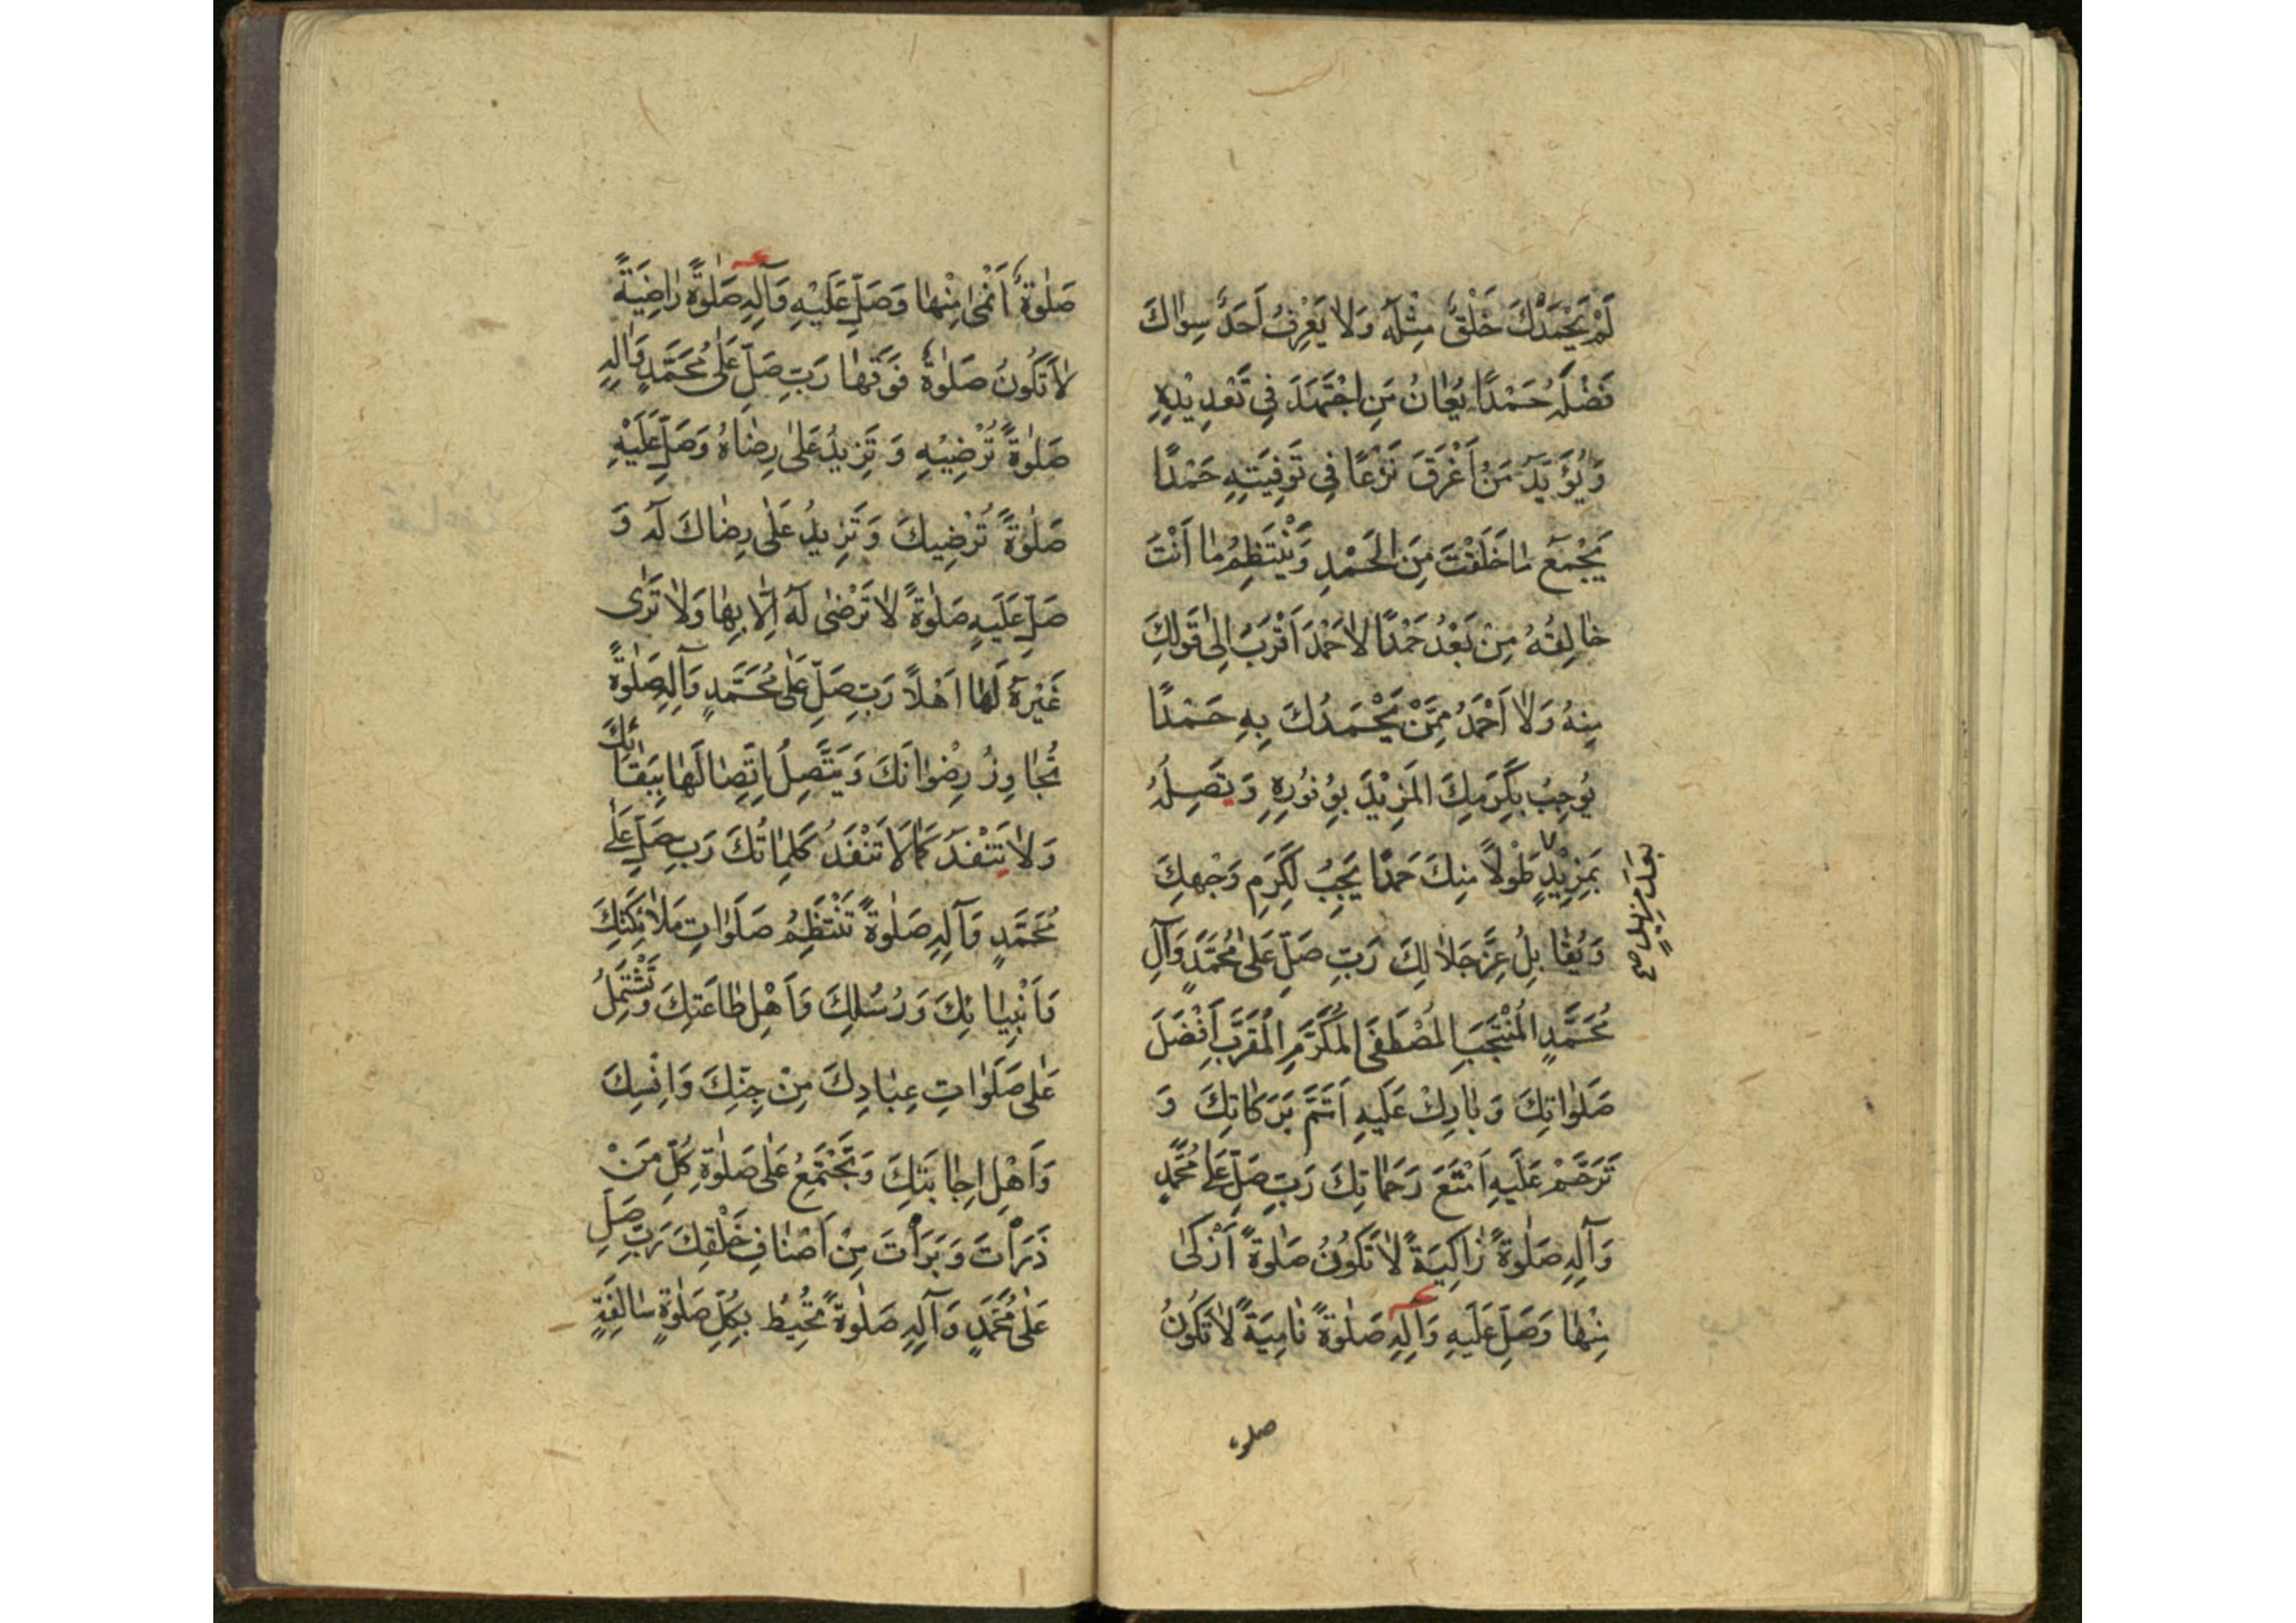 لَمْ يَحْمَدْكَ خَلْقٌ مِثْلَهُ وَلَا يَعْرِفُ اَحَدٌ سِوَاكَ
فَضْلَهُ حَمْدًا يُعَانُ مَنِ اجْتَهَدَ فِي تَعْدِيْدِهِ
وَيُؤَيَّدُ مَنْ اَغْرَقَ نَزْعًا فِي تَوْفِيَتِهِ حَمْدًا
يَجْمَعُ مَا خَلَقْتَ مِنَ الْحَمْدِ وَيَنْتَظِمُ مَا اَنْتَ
خَالِقُهُ مِنْ بَعْدُ حَمْدًا لَا حَمْدَ اَقْرَبُ اِلٰى قَوْلِكَ
مِنْهُ وَلَا اَحْمَدُ مِمَّنْ يَحْمَدُكَ بِهِ حَمْدًا
يُوجِبُ بِكَرَمِكَ الْمَزِيْدَ بِوُفُورِهِ وَتَصِلُهُ
بِمَزِيْدٍ طَوْلًا مِنْكَ حَمْدًا يَجِبُ لِكَرَمِ وَجْهِكَ
بَعْدَ مَزِيدٍ صح
وَيُقَابِلُ عِزَّ جَلَالِكَ رَبِّ صَلِّ عَلٰى مُحَمَّدٍ وَآلِ
مُحَمَّدٍ الْمُنْتَجَبِ الْمُصْطَفَى الْمُكَرَّمِ الْمُقَرَّبِ اَفْضَلَ
صَلَوَاتِكَ وَبَارِكْ عَلَيْهِ اَتَمَّ بَرَكَاتِكَ وَ
تَرَحَّمْ عَلَيْهِ اَمْتَعَ رَحَمَاتِكَ رَبِّ صَلِّ عَلٰى مُحَمَّدٍ
وَآلِهِ صَلٰوةً زَاكِيَةً لَا تَكُونُ صَلٰوةً اَزْكٰى
مِنْهَا وَصَلِّ عَلَيْهِ وَآلِهِ صَلٰوةً نَامِيَةً لَا تَكُونُ
صلوة
صَلٰوةٌ اَنْمٰى مِنْهَا وَصَلِّ عَلَيْهِ وَآلِهِ صَلٰوةً رَاضِيَةً
لَا تَكُونُ صَلٰوةٌ فَوْقَهَا رَبِّ صَلِّ عَلٰى مُحَمَّدٍ وَآلِهِ
صَلٰوةً تُرْضِيْهِ وَتَزِيدُ عَلٰى رِضَاهُ وَصَلِّ عَلَيْهِ
صَلٰوةً تُرْضِيكَ وَتَزِيدُ عَلٰى رِضَاكَ لَهُ وَ
صَلِّ عَلَيْهِ صَلٰوةً لَا تَرْضٰى لَهُ اِلَّا بِهَا وَلَا تَرٰى
غَيْرَهُ لَهَا اَهْلًا رَبِّ صَلِّ عَلٰى مُحَمَّدٍ وَآلِهِ صَلٰوةً
تُجَاوِزُ رِضْوَانَكَ وَيَتَّصِلُ اِتِّصَالُهَا بِبَقَائِكَ
وَلَا يَنْفَدُ كَمَا لَا تَنْفَدُ كَلِمَاتُكَ رَبِّ صَلِّ عَلٰى
مُحَمَّدٍ وَآلِهِ صَلٰوةً تَنْتَظِمُ صَلَوَاتِ مَلَائِكَتِكَ
وَاَنْبِيَائِكَ وَرُسُلِكَ وَاَهْلِ طَاعَتِكَ وَتَشْتَمِلُ
عَلٰى صَلَوَاتِ عِبَادِكَ مِنْ جِنِّكَ وَاِنْسِكَ
وَاَهْلِ اِجَابَتِكَ وَتَجْتَمِعُ عَلٰى صَلٰوةِ كُلِّ مَنْ
ذَرَأْتَ وَبَرَأْتَ مِنْ اَصْنَافِ خَلْقِكَ رَبِّ صَلِّ
عَلٰى مُحَمَّدٍ وَآلِهِ صَلٰوةً تُحِيطُ بِكُلِّ صَلٰوةٍ سَالِفَةٍ